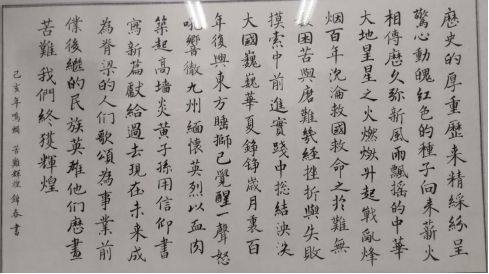 歷史的厚重歷来精綵紛呈
驚心動魄紅色的種子向来薪火
相傳歷久弥新風雨飄搖的中華
大地星星之火燃燃升起戰亂烽
烟百年沉淪救國救命之於難無
數困苦與磨難幾經挫折與失敗
摸索中前進實踐中総結泱泱
大國巍巍華夏錚錚歲月裏百
年復興東方睡獅已覺醒一聲怒
吼響徹九州緬懷英烈以血肉
築起高墻炎黃子孫用信仰書
寫新篇獻給過去現在未来成
為脊梁的人們歌頌為事業前
僕後繼的民族英雄他們歷盡
苦難我們終獲輝煌
己亥年鳴 苦難輝煌 錦春書